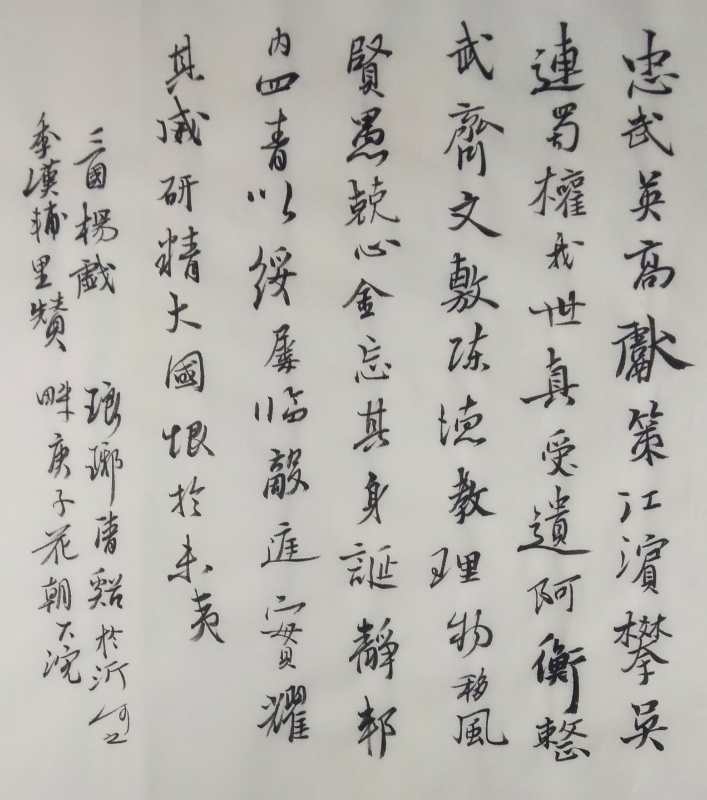 忠武英高獻策江濱攀吳
連蜀權我世真受遺阿衡整
武齊文敷陳德教理物移風
賢愚兢心僉忘其身誕靜邦
內四裔以綏屢臨敵庭實耀
其威研精大國恨於未夷
三國楊戲
季漢輔臣贊
琅琊清谿於沂
庚子花朝